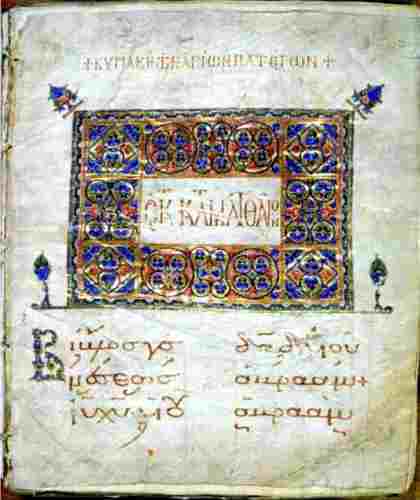 + ΚΥΡΙΑΚΗ ΤΩΝ ΑΓΙΩΝ ΠΑΤΕΡΩΝ +
ΕΚ ΚΑΤΑ ΜΑΤΘΑΙΟΝ
Βίβλος γε
νέσεως
ἰυ χυ υἱοῦ
δαδ υἱοῦ
ἀβραάμ +
ἀβραάμ